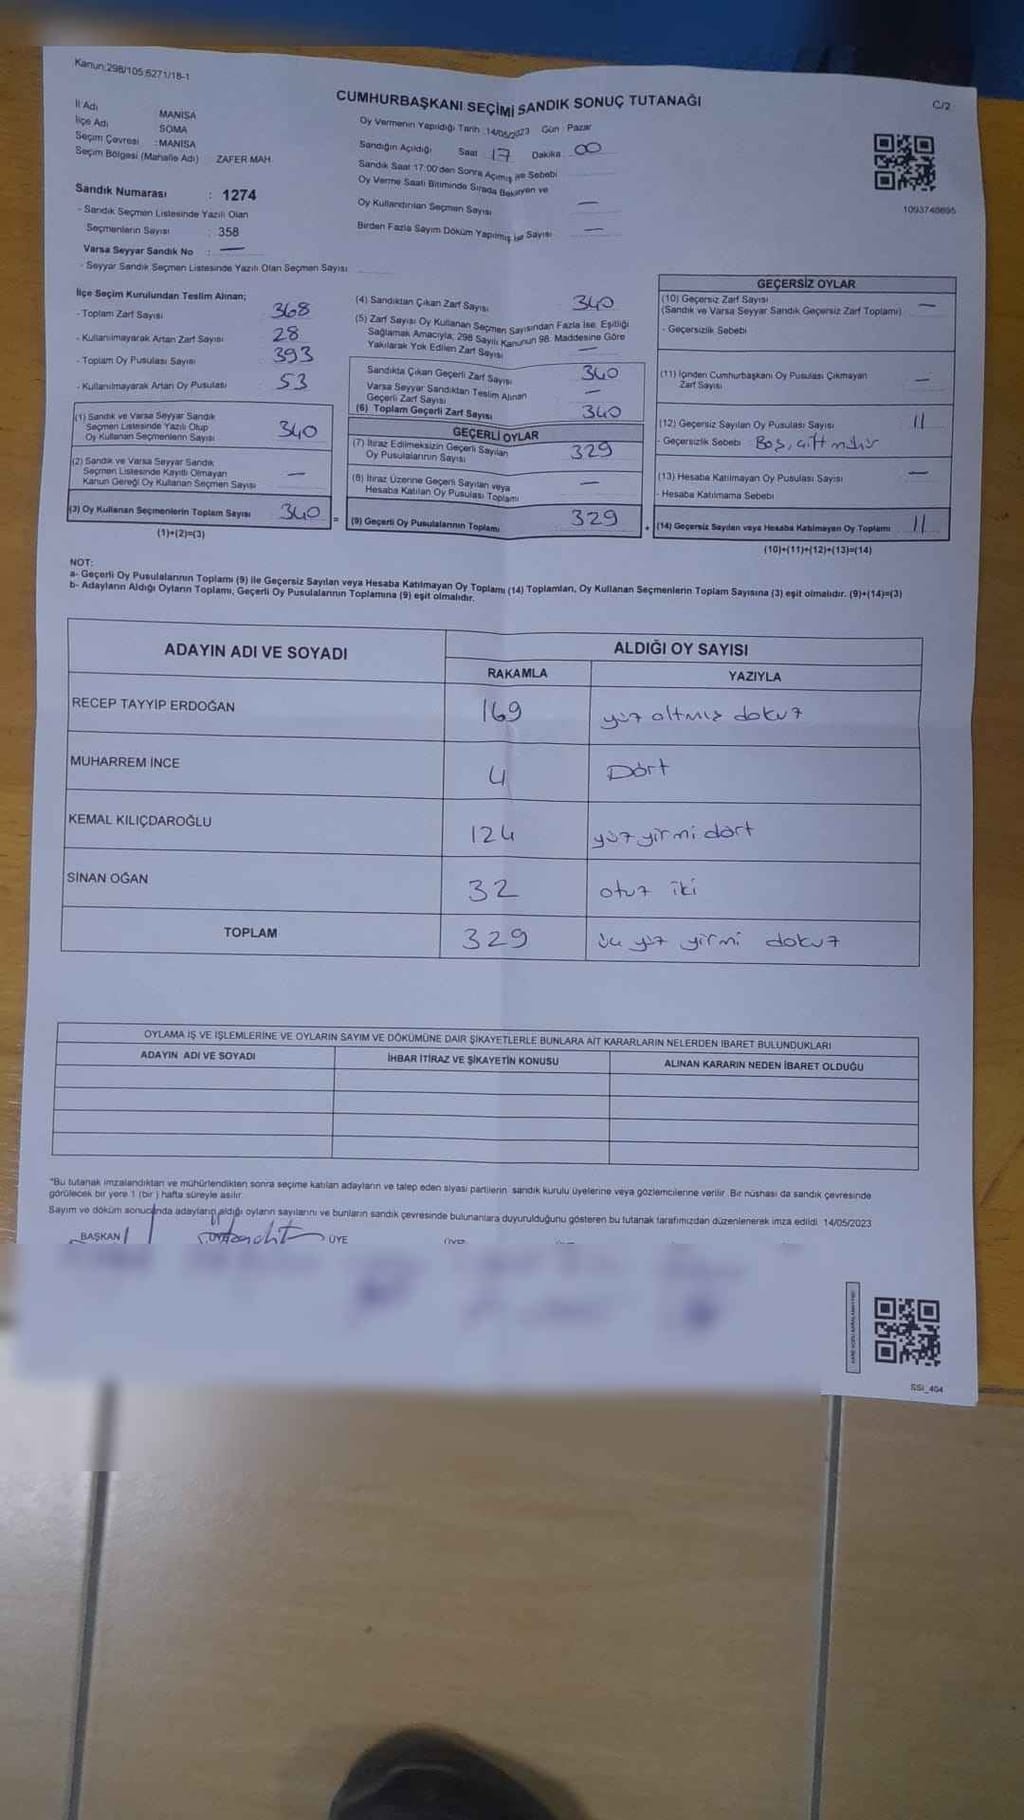 Kanun:298/105,6271/18-1
CUMHURBAŞKANI SEÇİMİ SANDIK SONUÇ TUTANAĞI
C/2
İl Adı MANİSA
İlçe Adı SOMA
Seçim Çevresi : MANİSA
Seçim Bölgesi (Mahalle Adı) ZAFER MAH.
Oy Vermenin Yapıldığı Tarih :14/05/2023 Gün : Pazar
Sandığın Açıldığı Saat 17 Dakika 00
Sandık Saat 17:00'den Sonra Açımış ise Sebebi
Oy Verme Saati Bitiminde Sırada Bekleyen ve
Oy Kullandırılan Seçmen Sayısı —
Birden Fazla Sayım Döküm Yapılmış ise Sayısı —
1093748695
Sandık Numarası : 1274
- Sandık Seçmen Listesinde Yazılı Olan
Seçmenlerin Sayısı : 358
Varsa Seyyar Sandık No : —
- Seyyar Sandık Seçmen Listesinde Yazılı Olan Seçmen Sayısı
İlçe Seçim Kurulundan Teslim Alınan;
- Toplam Zarf Sayısı 368
- Kullanılmayarak Artan Zarf Sayısı 28
- Toplam Oy Pusulası Sayısı 393
- Kullanılmayarak Artan Oy Pusulası 53
(1) Sandık ve Varsa Seyyar Sandık
Seçmen Listesinde Yazılı Olup
Oy Kullanan Seçmenlerin Sayısı 340
(2) Sandık ve Varsa Seyyar Sandık
Seçmen Listesinde Kayıtlı Olmayan
Kanun Gereği Oy Kullanan Seçmen Sayısı —
(3) Oy Kullanan Seçmenlerin Toplam Sayısı 340
(1)+(2)=(3)
=
(4) Sandıktan Çıkan Zarf Sayısı 340
(5) Zarf Sayısı Oy Kullanan Seçmen Sayısından Fazla İse, Eşitliği
Sağlamak Amacıyla, 298 Sayılı Kanunun 98. Maddesine Göre
Yakılarak Yok Edilen Zarf Sayısı —
Sandıkta Çıkan Geçerli Zarf Sayısı 340
Varsa Seyyar Sandıktan Teslim Alınan
Geçerli Zarf Sayısı —
(6) Toplam Geçerli Zarf Sayısı 340
GEÇERLİ OYLAR
(7) İtiraz Edilmeksizin Geçerli Sayılan
Oy Pusulalarının Sayısı 329
(8) İtiraz Üzerine Geçerli Sayılan veya
Hesaba Katılan Oy Pusulası Toplamı —
(9) Geçerli Oy Pusulalarının Toplamı 329
+
GEÇERSİZ OYLAR
(10) Geçersiz Zarf Sayısı —
(Sandık ve Varsa Seyyar Sandık Geçersiz Zarf Toplamı)
- Geçersizlik Sebebi
(11) İçinden Cumhurbaşkanı Oy Pusulası Çıkmayan
Zarf Sayısı —
(12) Geçersiz Sayılan Oy Pusulası Sayısı 11
- Geçersizlik Sebebi Boş, çift mühür
(13) Hesaba Katılmayan Oy Pusulası Sayısı —
- Hesaba Katılmama Sebebi
(14) Geçersiz Sayılan veya Hesaba Katılmayan Oy Toplamı 11
(10)+(11)+(12)+(13)=(14)
NOT:
a- Geçerli Oy Pusulalarının Toplamı (9) ile Geçersiz Sayılan veya Hesaba Katılmayan Oy Toplamı (14) Toplamları, Oy Kullanan Seçmenlerin Toplam Sayısına (3) eşit olmalıdır. (9)+(14)=(3)
b- Adayların Aldığı Oyların Toplamı, Geçerli Oy Pusulalarının Toplamına (9) eşit olmalıdır.
ADAYIN ADI VE SOYADI ALDIĞI OY SAYISI
RAKAMLA YAZIYLA
RECEP TAYYİP ERDOĞAN 169 yüz altmış dokuz
MUHARREM İNCE 4 Dört
KEMAL KILIÇDAROĞLU 124 yüz yirmi dört
SİNAN OĞAN 32 otuz iki
TOPLAM 329 üç yüz yirmi dokuz
OYLAMA İŞ VE İŞLEMLERİNE VE OYLARIN SAYIM VE DÖKÜMÜNE DAİR ŞİKAYETLERLE BUNLARA AİT KARARLARIN NELERDEN İBARET BULUNDUKLARI
ADAYIN ADI VE SOYADI İHBAR İTİRAZ VE ŞİKAYETİN KONUSU ALINAN KARARIN NEDEN İBARET OLDUĞU
*Bu tutanak imzalandıktan ve mühürlendikten sonra seçime katılan adayların ve talep eden siyasi partilerin sandık kurulu üyelerine veya gözlemcilerine verilir. Bir nüshası da sandık çevresinde
görülecek bir yere 1 (bir ) hafta süreyle asılır.
Sayım ve döküm sonucunda adayların aldığı oyların sayılarını ve bunların sandık çevresinde bulunanlara duyurulduğunu gösteren bu tutanak tarafımızdan düzenlenerek imza edildi. 14/05/2023
BAŞKAN ÜYE
SSI_404